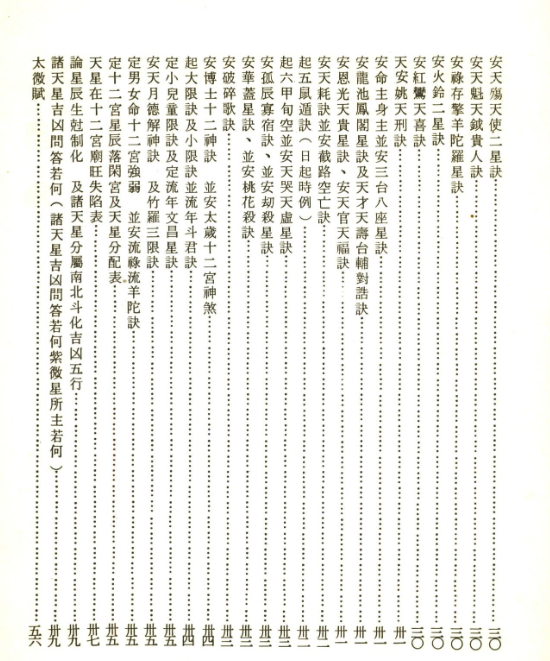 安天殤天使二星訣⋯⋯三〇
安天魁天鉞貴人訣⋯⋯三〇
安祿存擎羊陀羅星訣⋯⋯三〇
安火鈴二星訣⋯⋯三〇
安紅鸞天喜訣⋯⋯三〇
天安姚天刑訣⋯⋯卅一
安命主身主並安三台八座星訣⋯⋯卅一
安龍池鳳閣星訣及天才天壽台輔對誥訣⋯⋯卅一
安恩光天貴星訣、安天官天福訣⋯⋯卅一
安天耗訣並安截路空亡訣⋯⋯卅一
起五鼠遁訣（日起時例）⋯⋯卅二
起六甲旬空並安天哭天虛星訣⋯⋯卅二
安孤辰寡宿訣、並安刧殺星訣⋯⋯卅三
安華蓋星訣、並安桃花殺訣⋯⋯卅三
安破碎歌訣⋯⋯卅三
安博士十二神訣　並安太歲十二宮神煞⋯⋯卅四
起大限訣及小限訣並流年斗君訣⋯⋯卅四
定小兒童限訣及定流年文昌星訣⋯⋯卅五
安天月德解神訣　及竹羅三限訣⋯⋯卅五
定男女命十二宮強弱　並安流祿流羊陀訣⋯⋯卅五
定十二宮星辰落閑宮及天星分配表⋯⋯卅五
天星在十二宮廟旺失陷表⋯⋯卅七
論星辰生尅制化　及諸天星分屬南北斗化吉凶五行⋯⋯卅九
諸天星吉凶問答若何（諸天星吉凶問答若何紫微星所主若何）⋯⋯卅九
太微賦⋯⋯五六